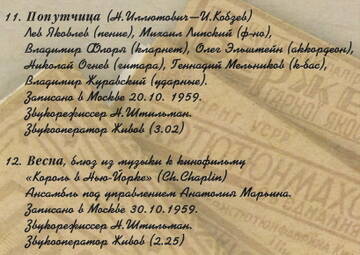 11. Попутчица (Н.Иллютович—И.Кобзев)
Лев Яковлев (пение), Михаил Липский (ф-но),
Владимир Флоря (кларнет), Олег Эльштейн (аккордеон),
Николай Огнев (гитара), Геннадий Мельников (к-бас),
Владимир Журавский (ударные).
Записано в Москве 20.10. 1959.
Звукорежиссер Н.Штильман.
Звукооператор Живов (3.02)
12. Весна, блюз из музыки к кинофильму
«Король в Нью-Йорке» (Ch.Chaplin)
Ансамбль под управлением Анатолия Марьина.
Записано в Москве 30.10.1959.
Звукорежиссер Н.Штильман.
Звукооператор Живов (2.25)